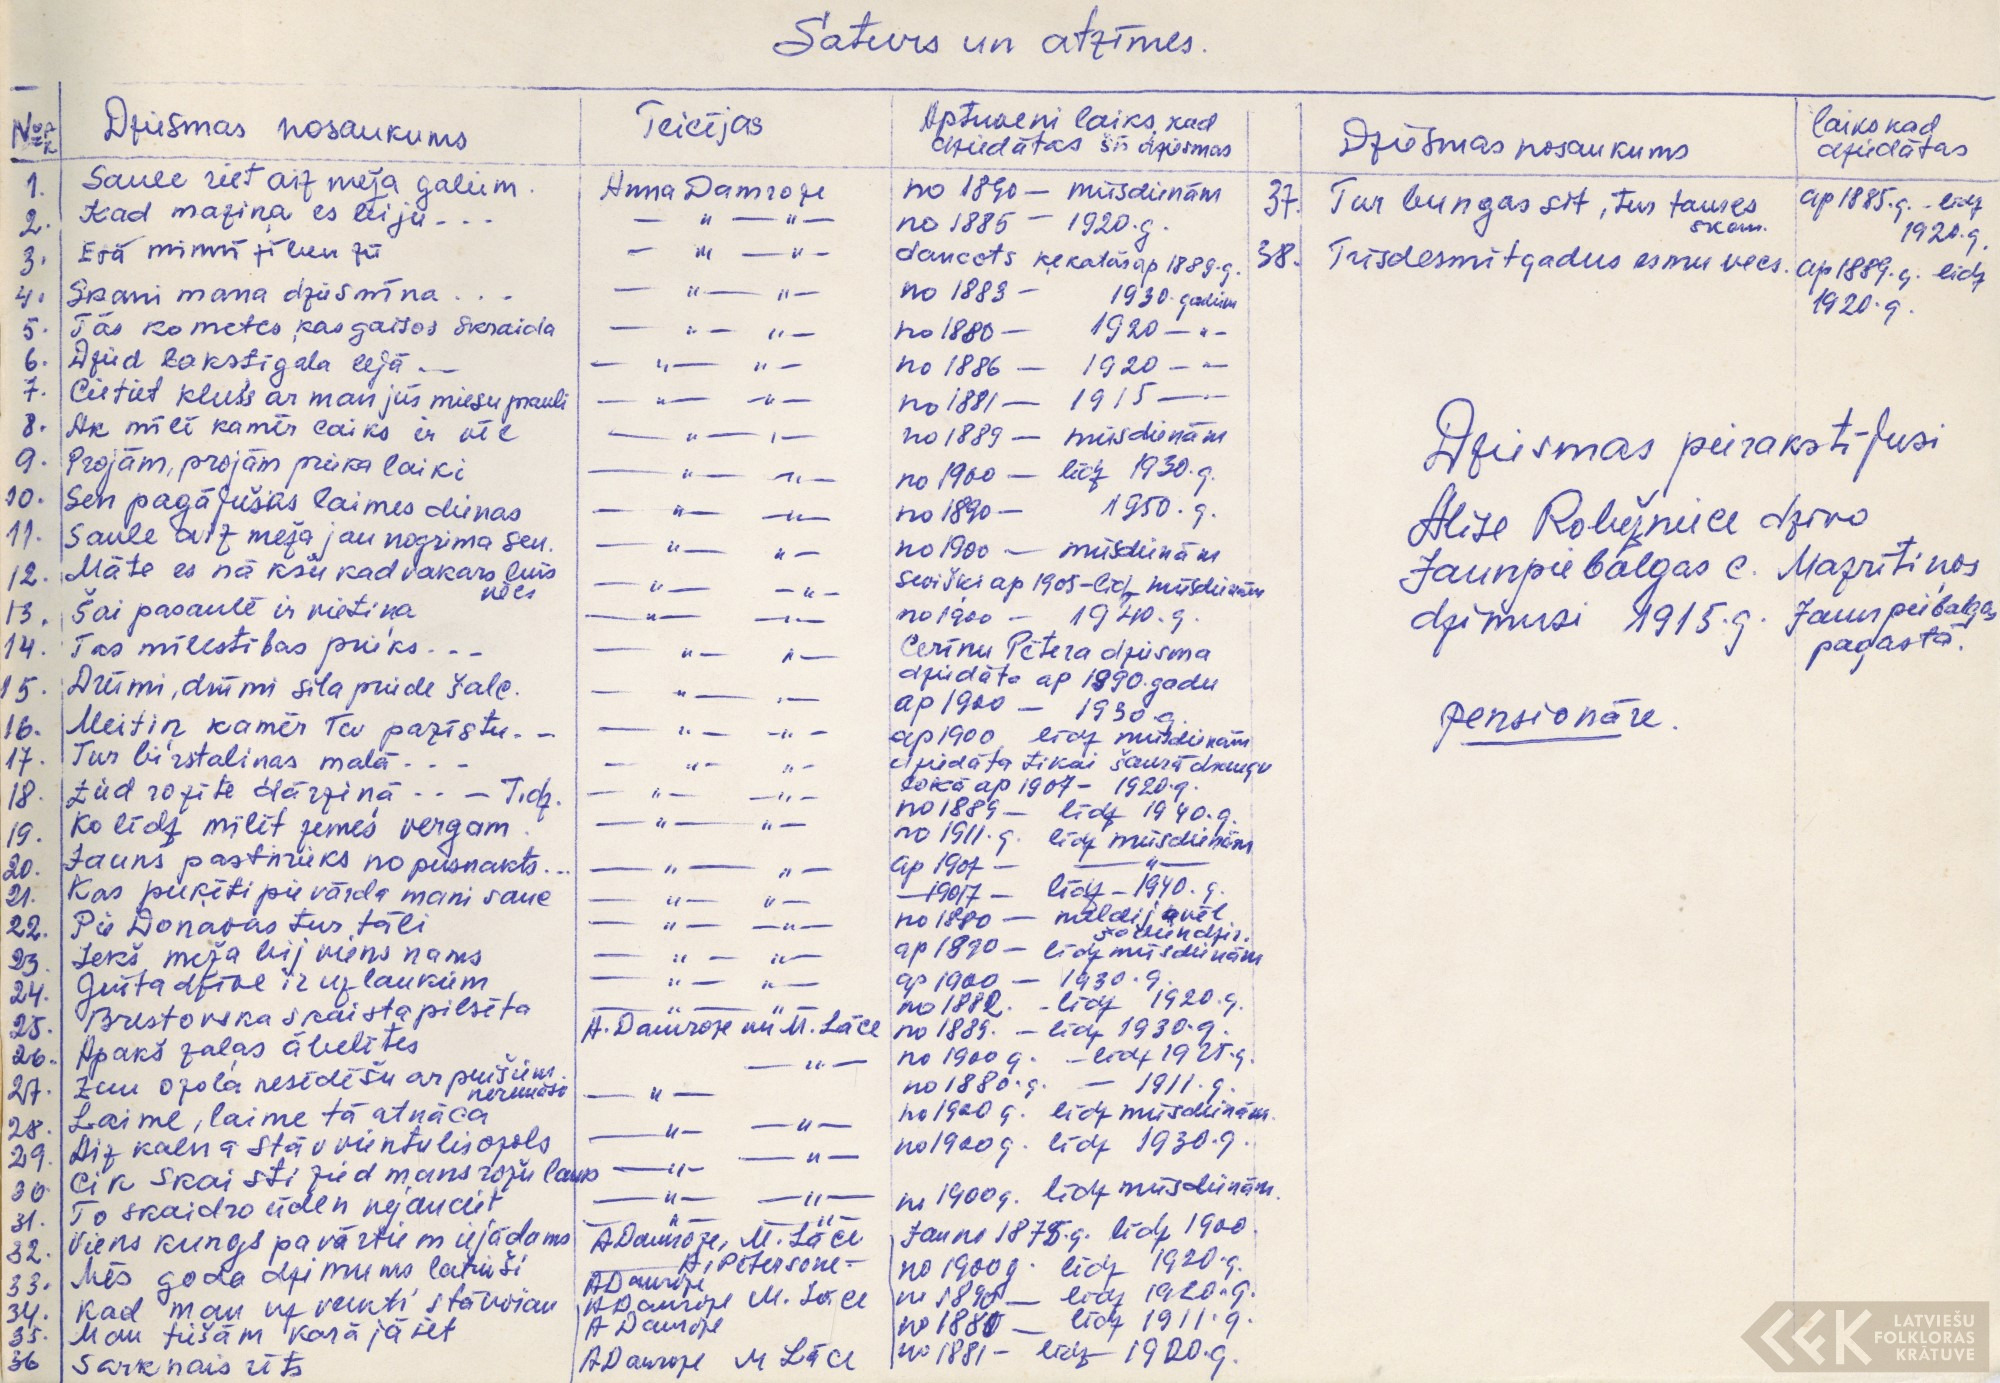 Saturs un atzīmes.
Dziesmas nosaukums Teicējas Aptuveni laiks, kad dziedātas šīs dziesmas Dziesmas nosaukums laiks kad dziedātas
1. Saule riet aiz meža galiem. Anna Damroze no 1890 – mūsdienām
2. Kad maziņa es biju - - - — " — " — no 1885 – 1920.g.
3. — " — " — dancots ķekatās ap 1889.g.
4. Skani mana dziesmiņa . . . — " — " — no 1883 – 1930. gadiem
5. Tās komētes, kas gaisos skraida — " — " — no 1880 – 1920 — " —
6. Dzied lakstīgala lejā — — " — " — no 1886 – 1920 — " —
7. Cietiet klusi ar man jūs miesu prauli — " — " — no 1881 – 1915 — " —
8. Ak mīlē kamēr laiks ir vēl — " — " — no 1889 – mūsdienām
9. Projām, projām prieka laiki — " — " — no 1900 – līdz 1930.g.
10. Sen pagājušās laimes dienas — " — " — no 1890 – 1950.g.
11. Saule aiz meža jau nogrima sen. — " — " — no 1900 – mūsdienām
12. Māte es nākšu kad vakars būs vēls — " — " — sevišķi ap 1905 – līdz mūsdienām
13. Šai pasaulē ir vietiņa — " — " — no 1900 – 1940.g.
14. Tas mīlestības prieks - - - — " — " — Ceriņu Pētera dziesma dziedāta ap 1890. gadu
15. Drūmi, drūmi sila priede šalc. — " — " — ap 1900 – 1930.g.
16. Meitiņ kamēr Tev pazīstu - - — " — " — ap 1900 līdz mūsdienām
17. Tur birstaliņas malā - - - — " — " — dziedāta tikai šaurā draugu lokā ap 1907 – 1920.g.
18. Zied rozīte dārziņā - - — T.dz. — " — " — no 1889 – līdz 1940.g.
19. Ko līdz mīlēt zemes vergam. — " — " — no 1911.g. līdz mūsdienām
20. Jauns pastnieks no pusnakts... — " — " — ap 1907 – — " —
21. Kas puķīti pie vārda mani sauc — " — " — 1907 – līdz – 1940.g.
22. Pie Donavas tur tāli — " — " — no 1880 –
23. Iekš meža bij viens nams — " — " — ap 1890 – līdz mūsdienām
24. Gušta dzīve ir uz laukiem — " — " — ap 1900 – 1930.g.
25. Brestovska skaista pilsēta — " — " — no 1882. – līdz 1920.g.
26. Apakš zaļas ābelītes A. Damroze un M. Lāce no 1889. – līdz 1930.g.
27. Zem ozola nesēdēšu ar puišiem nerunāšu — " — no 1900 g. – līdz 1925.g.
28. Laime, laime tā atnāca — " — no 1880.g. – 1911.g.
29. Aiz kalna stāv vientulis ozols — " — " — no 1900 g. līdz mūsdienām.
30. Cik skaisti zied mans rožu lauks — " — " — no 1900 g. līdz 1930.g.
31. To skaidro ūden nejauciet — " — " — no 1900g. līdz mūsdienām.
32. Viens kungs pa vārtiem iejādams A Damroze, M. Lāce Jau no 1875.g. līdz 1900.
33. Mēs goda dzimums latvieši A Damroze A, Pētersone – no 1900g. līdz 1920.g.
34. Kad man uz vakti stāvvian A Damroze M. Lāce no 1890 – līdz 1920.g.
35. Man tiešām karā jāiet A Damroze no 1880 – līdz 1911.g.
36 Sarknais rīts A Damroze M Lāce no 1881 – līdz 1920.g.
37. Tur bungas sit, tur taures skan. ap 1885.g. – līdz 1920.g.
38. Trīsdesmit gadus esmu vecs. ap 1889.g. līdz 1920.g.
Dziesmas pierakstījusi
Alise Robežniece dzīvo
Jaunpiebalgas c. Mazrītiņos
dzimusi 1915.g. Jaunpiebalgas
pagastā.
pensionāre.
LATVIEŠU
FOLKLORAS
KRĀTUVE